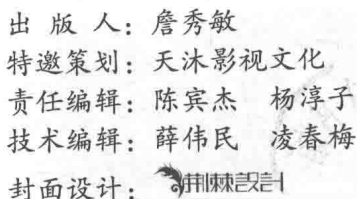 出版人：詹秀敏
特邀策划：天沐影视文化
责任编辑：陈宾杰 杨淳子
技术编辑：薛伟民 凌春梅
封面设计：荆棘設計